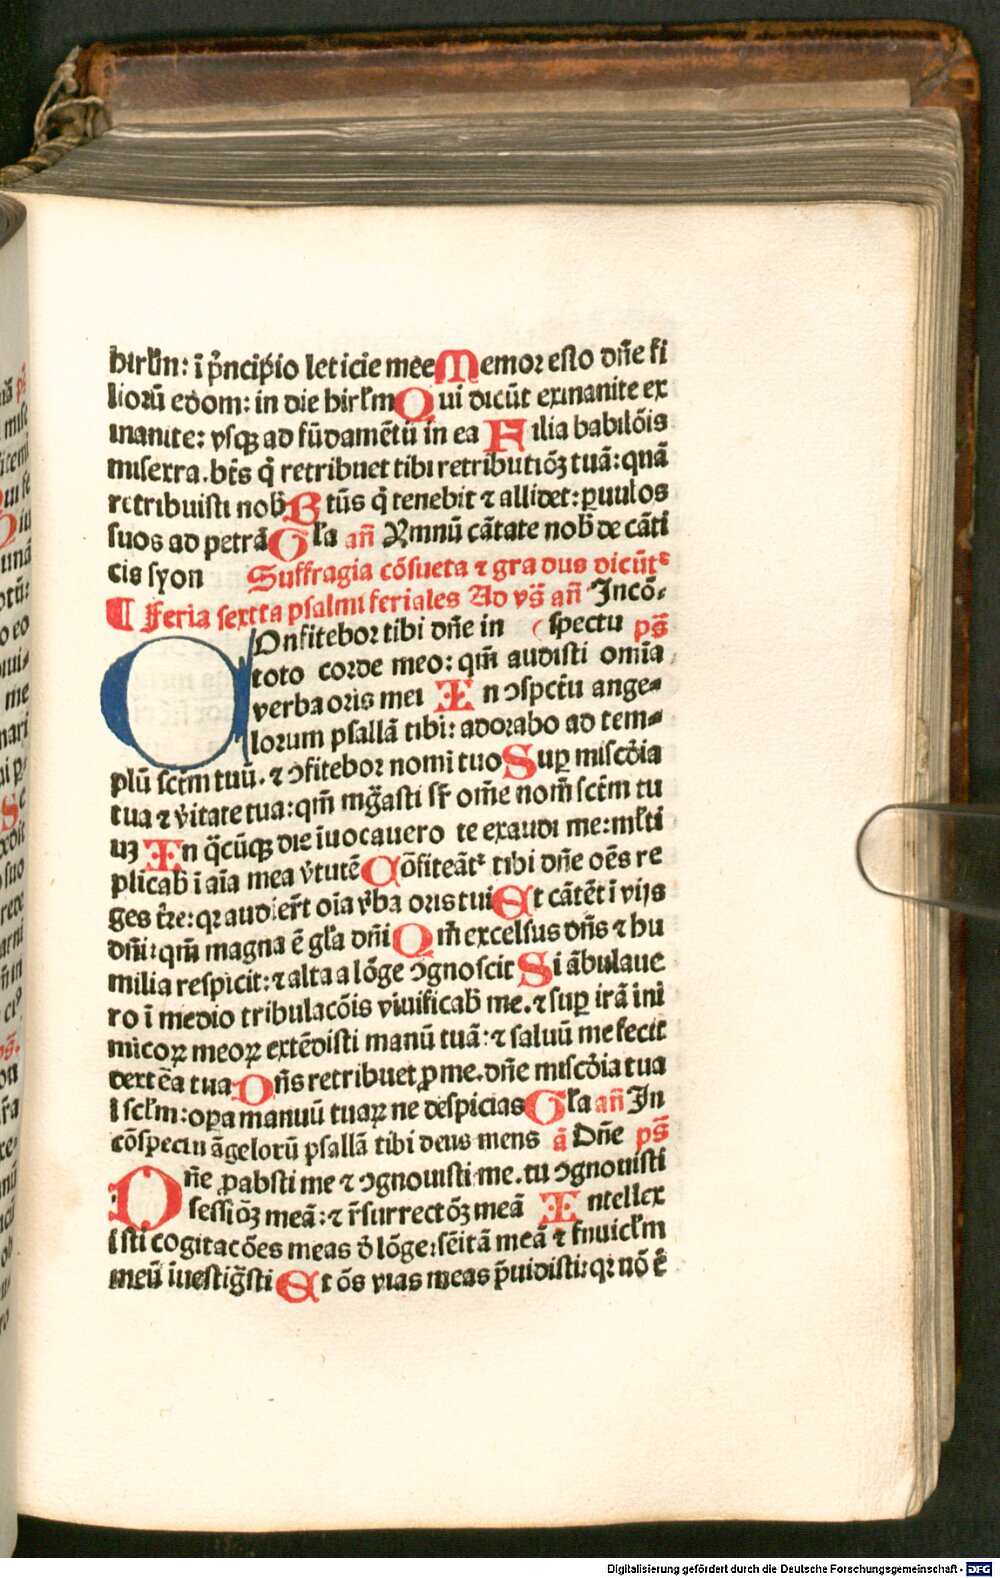 hirłm: ī pͥncipio leticie mee Memor esto dn̄e fi
liorū edom: in die hirłm Qui dicūt exinanite ex
inanite: vsqꝫ ad fūdamētū in ea Filia babilōis
misera. bt̄s q̄ retribuet tibi retributiōꝫ tuā: quā
retribuisti nob̄ Btūs q̄ tenebit ⁊ allidet: ꝑuulos
suos ad petrā Gła an̄ Ymnū cātate nob̄ de cāti
cis syon Suffragia cōsueta ⁊ gradus dicūt᷑
¶ Feria sextta psalmi feriales Ad vs̄ an̄ Incō⸗
COnfitebor tibi dn̄e in ( spectu ps̄
toto corde meo: qm̄ audisti omīa
verba oris mei In ↄspctu ange⸗
lorum psallā tibi: adorabo ad tem⸗
plū sctm̄ tuū. ⁊ ↄfitebor nomi tuo Suꝑ miscd̄ia
tua ⁊ v̄itate tua: qm̄ mḡasti sr̄ om̄e nom̄ sctm̄ tu
uꝫ In q̄cūqꝫ die īuocauero te exaudi me: młti
plicab̄ ī aīa mea v̄tutē Cōfiteāt᷑ tibi dn̄e oēs re
ges tr̄e: qꝛ audier̄t oīa v̄ba oris tui Et cātēt ī vijs
dn̄i: qm̄ magna ē gła dn̄i Qm̄ excelsus dn̄s ⁊ hu
milia respicit: ⁊ alta a lōge ↄgnoscit Si ābulaue
ro ī medio tribulacōis viuificab̄ me. ⁊ suꝑ irā ini
micoꝝ meoꝝ extēdisti manū tuā: ⁊ saluū me fecit
dextēa tua Dn̄s retribuet ꝓ me. dn̄e miscd̄ia tua
ī sclm̄: oꝑa manuū tuaꝝ ne despicias Gła an̄ In
cōspectu āgelorū psallā tibi deus meus ā Dn̄e ps̄
Dn̄e ꝓbasti me ⁊ ↄgnouisti me. tu ↄgnouisti
sessiōꝫ meā: ⁊ r̄surrectōꝫ meā Intellex
isti cogitacōes meas d̄ lōge: sēitā meā ⁊ funiclm̄
meū īuestiḡsti Et ōs vias meas p̄uidisti: qꝛ nō ē
Digitalisierung gefördert durch die Deutsche Forschungsgemeinschaft - DFG